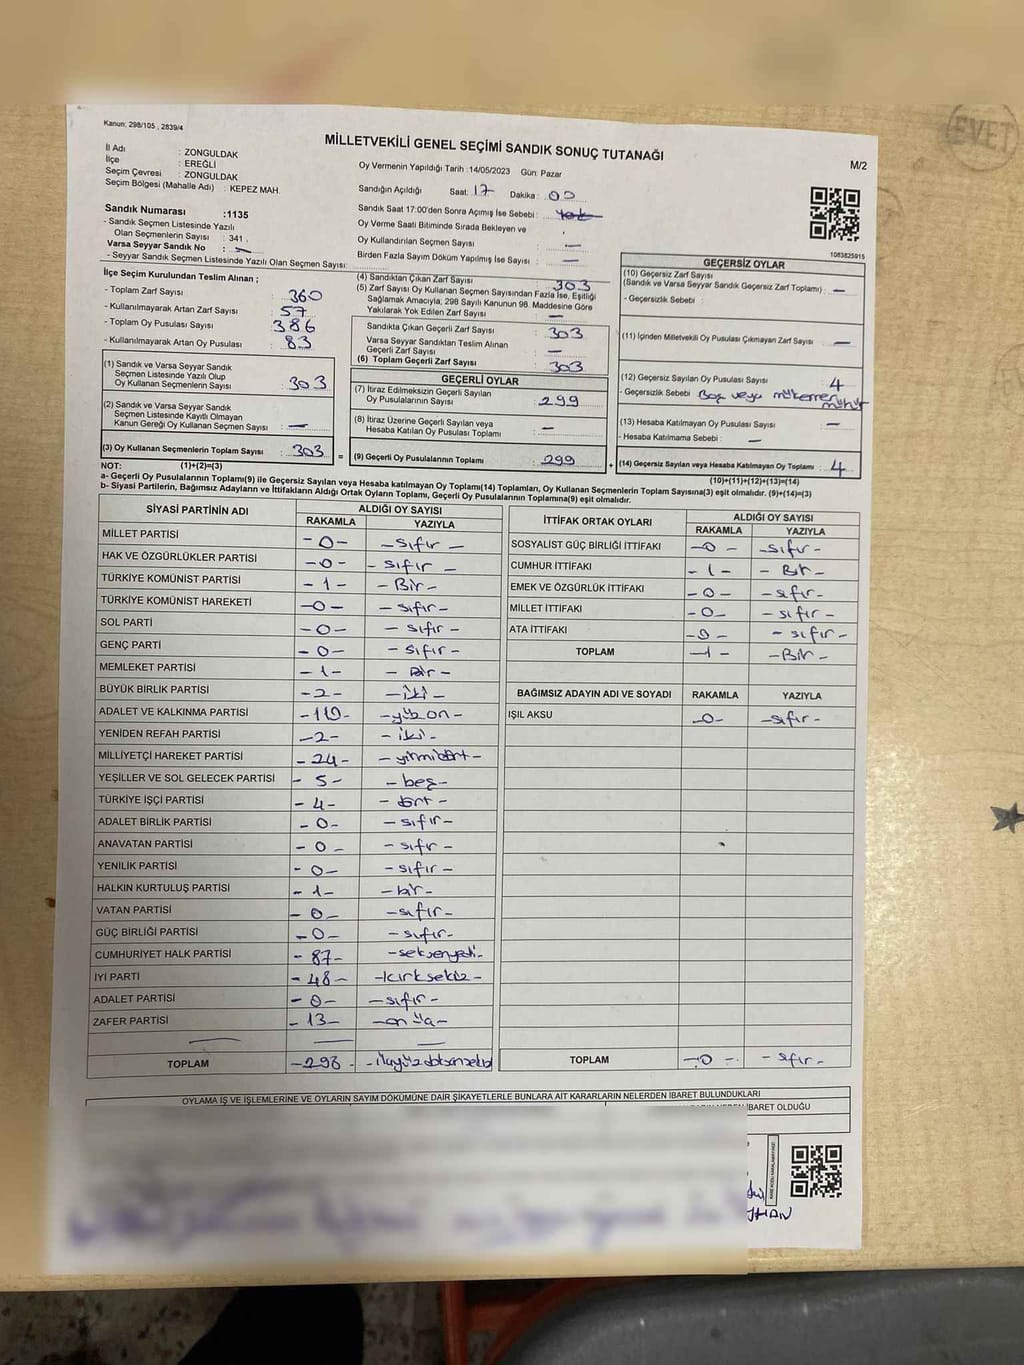 EVET
Kanun: 298/105 , 2839/4
MİLLETVEKİLİ GENEL SEÇİMİ SANDIK SONUÇ TUTANAĞI
M/2
İl Adı : ZONGULDAK
İlçe : EREĞLİ
Seçim Çevresi : ZONGULDAK
Seçim Bölgesi (Mahalle Adı) : KEPEZ MAH.
Oy Vermenin Yapıldığı Tarih :14/05/2023 Gün: Pazar
Sandığın Açıldığı Saat: 17 Dakika : 00
Sandık Saat 17:00'den Sonra Açılmış İse Sebebi : Yok
Oy Verme Saati Bitiminde Sırada Bekleyen ve
Oy Kullandırılan Seçmen Sayısı : —
Birden Fazla Sayım Döküm Yapılmış İse Sayısı : —
Sandık Numarası :1135
- Sandık Seçmen Listesinde Yazılı
Olan Seçmenlerin Sayısı : 341
Varsa Seyyar Sandık No : —
- Seyyar Sandık Seçmen Listesinde Yazılı Olan Seçmen Sayısı:
1083825915
İlçe Seçim Kurulundan Teslim Alınan ;
- Toplam Zarf Sayısı : 360
- Kullanılmayarak Artan Zarf Sayısı : 57
- Toplam Oy Pusulası Sayısı : 386
- Kullanılmayarak Artan Oy Pusulası : 83
(1) Sandık ve Varsa Seyyar Sandık
Seçmen Listesinde Yazılı Olup
Oy Kullanan Seçmenlerin Sayısı : 303
(2) Sandık ve Varsa Seyyar Sandık
Seçmen Listesinde Kayıtlı Olmayan
Kanun Gereği Oy Kullanan Seçmen Sayısı : —
(3) Oy Kullanan Seçmenlerin Toplam Sayısı : 303
(4) Sandıktan Çıkan Zarf Sayısı : 303
(5) Zarf Sayısı Oy Kullanan Seçmen Sayısından Fazla İse, Eşitliği
Sağlamak Amacıyla, 298 Sayılı Kanunun 98. Maddesine Göre
Yakılarak Yok Edilen Zarf Sayısı : —
Sandıkta Çıkan Geçerli Zarf Sayısı : 303
Varsa Seyyar Sandıktan Teslim Alınan
Geçerli Zarf Sayısı : —
(6) Toplam Geçerli Zarf Sayısı : 303
GEÇERLİ OYLAR
(7) İtiraz Edilmeksizin Geçerli Sayılan
Oy Pusulalarının Sayısı : 299
(8) İtiraz Üzerine Geçerli Sayılan veya
Hesaba Katılan Oy Pusulası Toplamı : —
= (9) Geçerli Oy Pusulalarının Toplamı : 299
GEÇERSİZ OYLAR
(10) Geçersiz Zarf Sayısı
(Sandık ve Varsa Seyyar Sandık Geçersiz Zarf Toplamı) : —
- Geçersizlik Sebebi :
(11) İçinden Milletvekili Oy Pusulası Çıkmayan Zarf Sayısı : —
(12) Geçersiz Sayılan Oy Pusulası Sayısı : 4
- Geçersizlik Sebebi : Boş veya mükerrer mühür
(13) Hesaba Katılmayan Oy Pusulası Sayısı : —
- Hesaba Katılmama Sebebi : —
+ (14) Geçersiz Sayılan veya Hesaba Katılmayan Oy Toplamı : 4
NOT: (1)+(2)=(3)
(10)+(11)+(12)+(13)=(14)
a- Geçerli Oy Pusulalarının Toplamı(9) ile Geçersiz Sayılan veya Hesaba katılmayan Oy Toplamı(14) Toplamları, Oy Kullanan Seçmenlerin Toplam Sayısına(3) eşit olmalıdır. (9)+(14)=(3)
b- Siyasi Partilerin, Bağımsız Adayların ve İttifakların Aldığı Ortak Oyların Toplamı, Geçerli Oy Pusulalarının Toplamına(9) eşit olmalıdır.
SİYASİ PARTİNİN ADI ALDIĞI OY SAYISI
RAKAMLA YAZIYLA
MİLLET PARTİSİ -0- -sıfır-
HAK VE ÖZGÜRLÜKLER PARTİSİ -0- -sıfır-
TÜRKİYE KOMÜNİST PARTİSİ -1- -Bir-
TÜRKİYE KOMÜNİST HAREKETİ -0- -sıfır-
SOL PARTİ -0- -sıfır-
GENÇ PARTİ -0- -sıfır-
MEMLEKET PARTİSİ -1- -Bir-
BÜYÜK BİRLİK PARTİSİ -2- -iki-
ADALET VE KALKINMA PARTİSİ -110- -yüzon-
YENİDEN REFAH PARTİSİ -2- -iki-
MİLLİYETÇİ HAREKET PARTİSİ -24- -yirmidört-
YEŞİLLER VE SOL GELECEK PARTİSİ -5- -beş-
TÜRKİYE İŞÇİ PARTİSİ -4- -dört-
ADALET BİRLİK PARTİSİ -0- -sıfır-
ANAVATAN PARTİSİ -0- -sıfır-
YENİLİK PARTİSİ -0- -sıfır-
HALKIN KURTULUŞ PARTİSİ -1- -bir-
VATAN PARTİSİ -0- -sıfır-
GÜÇ BİRLİĞİ PARTİSİ -0- -sıfır-
CUMHURİYET HALK PARTİSİ -87- -seksenyedi-
İYİ PARTİ -48- -kırksekiz-
ADALET PARTİSİ -0- -sıfır-
ZAFER PARTİSİ -13- -onüç-
TOPLAM -298- -ikiyüzdoksansekiz
İTTİFAK ORTAK OYLARI ALDIĞI OY SAYISI
RAKAMLA YAZIYLA
SOSYALİST GÜÇ BİRLİĞİ İTTİFAKI -0- -sıfır-
CUMHUR İTTİFAKI -1- -Bir-
EMEK VE ÖZGÜRLÜK İTTİFAKI -0- -sıfır-
MİLLET İTTİFAKI -0- -sıfır-
ATA İTTİFAKI -0- -sıfır-
TOPLAM -1- -Bir-
BAĞIMSIZ ADAYIN ADI VE SOYADI RAKAMLA YAZIYLA
IŞIL AKSU -0- -sıfır-
TOPLAM -0- -sıfır-
OYLAMA İŞ VE İŞLEMLERİNE VE OYLARIN SAYIM DÖKÜMÜNE DAİR ŞİKAYETLERLE BUNLARA AİT KARARLARIN NELERDEN İBARET BULUNDUKLARI
İBARET OLDUĞU